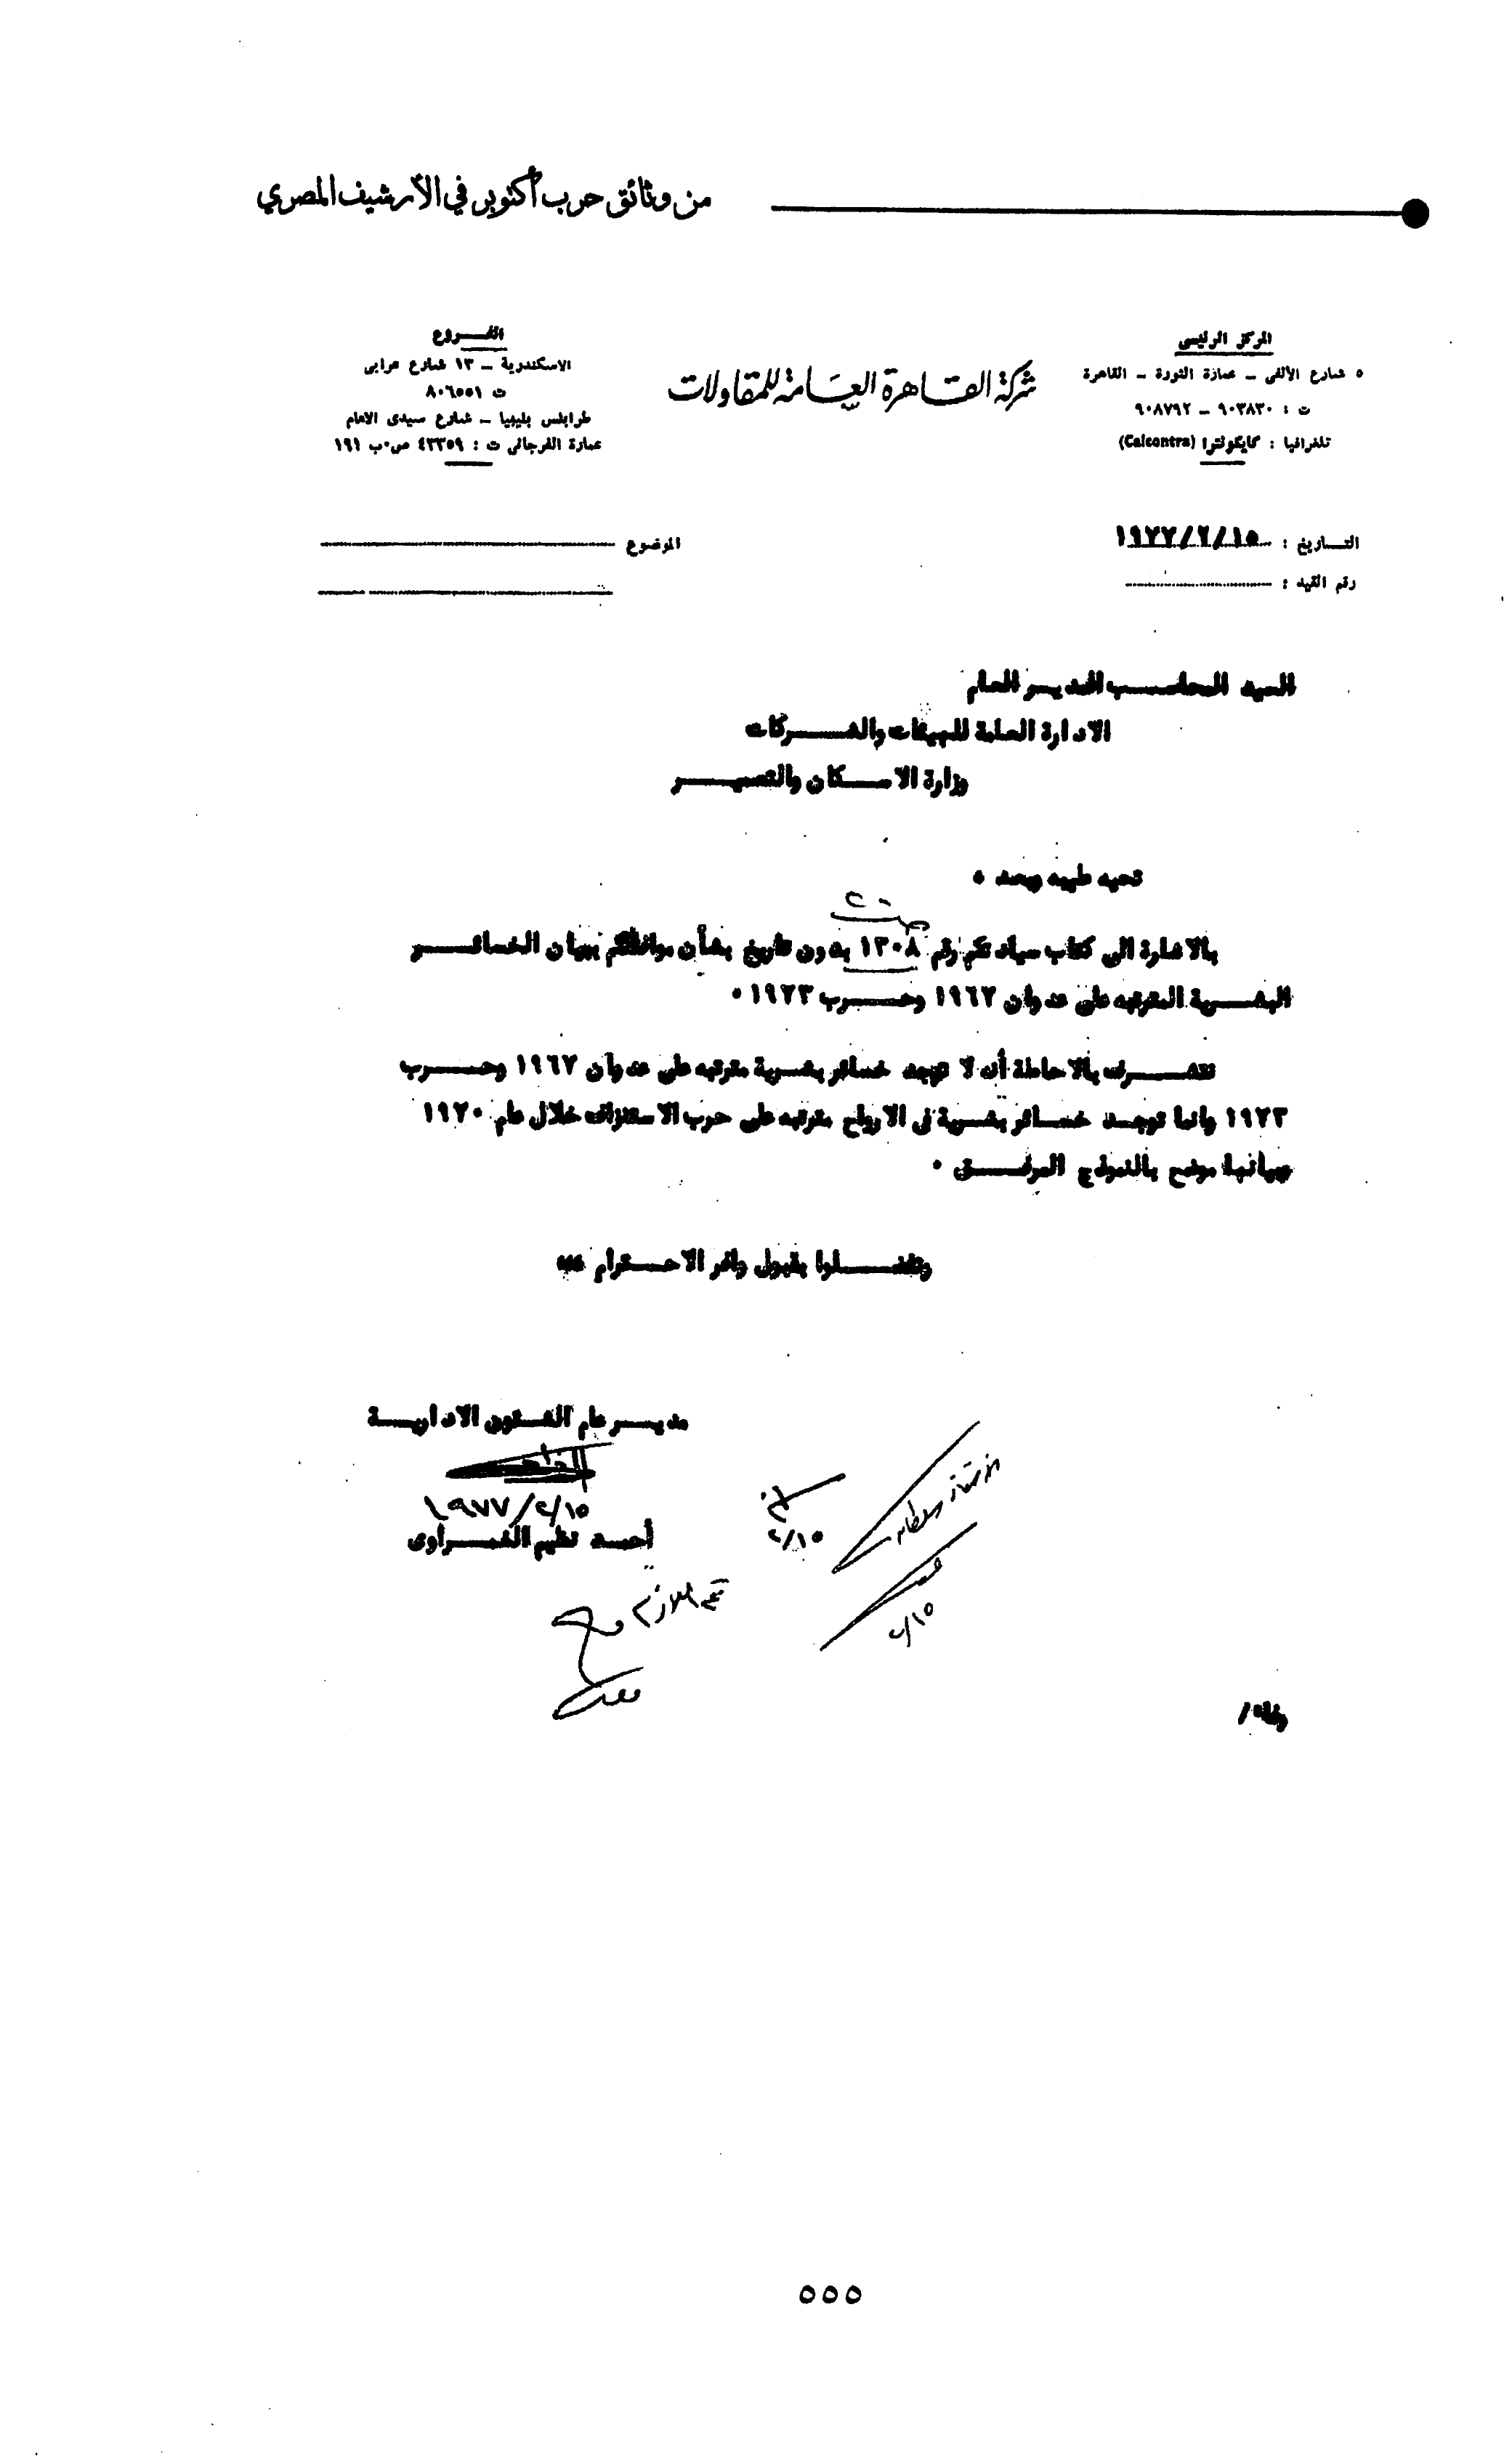 من وثائق حرب أكتوبر في الأرشيف المصري
المركز الرئيسى
٥ شارع الألفى – عمارة الثورة – القاهرة
ت : ٩٠٣٨٣٠ – ٩٠٨٧٩٢
تلغرافيا : كايكونترا (Caicontra)
شركة القاهرة العامة للمقاولات
الفـــروع
الاسكندرية – ١٣ شارع عرابى
ت ٨٠٦٥٥١
طرابلس بليبيا – شارع سيدى الامام
عمارة الفرجانى ت : ٤٣٣٥٩ ص٠ب ١٩١
التـــاريخ : ١٩٧٧/٢/١٥
الموضوع
رقم القيد :
السيد المحاسب المدير العام
الادارة العامة للهيئات والشركات
وزارة الاسكان والتعمير
تحيه طيبه وبعد ٠
بالاشارة الى كتاب سيادتكم رقم ١٣٠٨ بدون تاريخ بشأن موافاتكم ببيان الخسائر
البشرية المترتبه على عدوان ١٩٦٧ وحرب ١٩٧٣ ٠
نتشرف بالاحاطة أنه لا توجد خسائر بشرية مترتبه على عدوان ١٩٦٧ وحرب
١٩٧٣ وانما توجد خسائر بشرية فى الارواح مترتبه على حرب الاستنزاف خلال عام ١٩٧٠
وبيانها موضح بالنموذج المرفق ٠
وتفضلوا بقبول وافر الاحترام
مديـر عام الشئون الادارية
١٩٧٧/٢/١٥
أحمد نظيم الغمراوى
٢/١٥
٢/١٥
وفاء/
٥٥٥